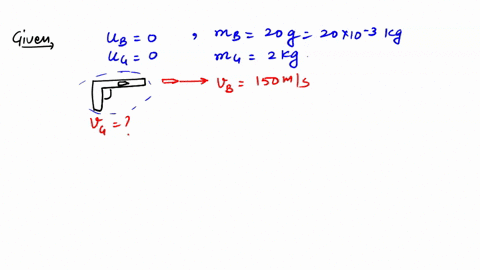 Given, u_B = 0 , m_B = 20g = 20×10⁻³ kg
u_G = 0 m_G = 2 kg.
v_B = 150 m/s
v_G = ?